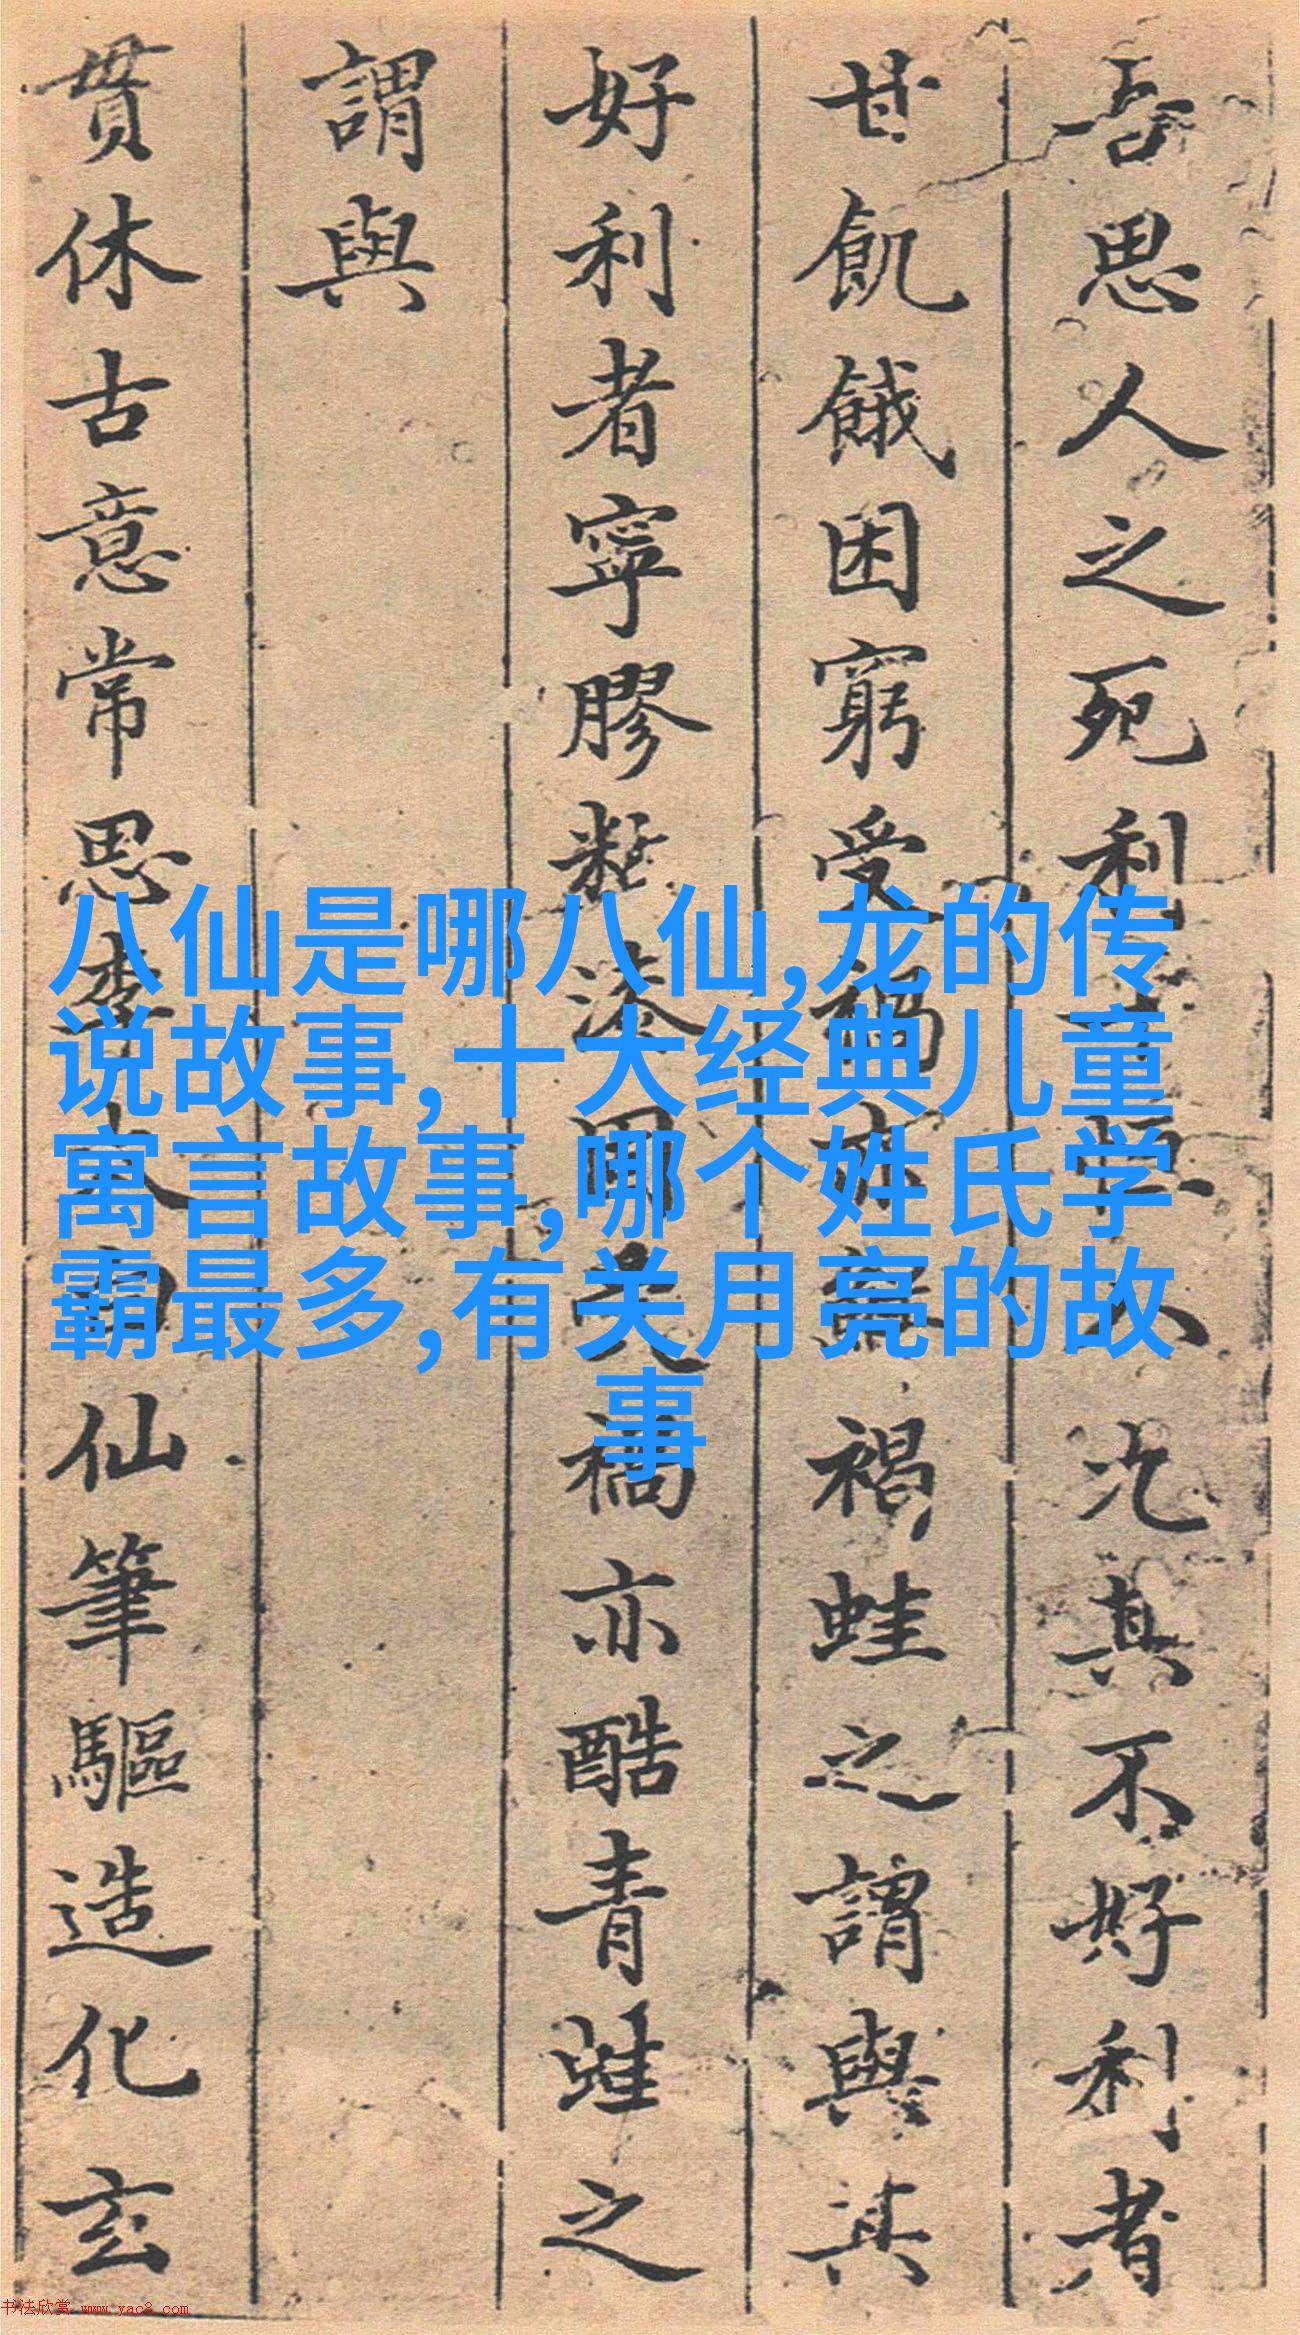 吾思人之死利
沈其不好利者
甘飢餓困窮受禍亦
褐蛙之謂與其
好利者寧膠
漆
禍亦酷青蛙之
謂與
貫休古意常思李太白仙筆驅造化玄
八仙是哪八仙,龙的传
说故事,十大经典儿童
寓言故事,哪个姓氏学
霸最多,有关月亮的故
事
书法欣赏 www.yac8.com